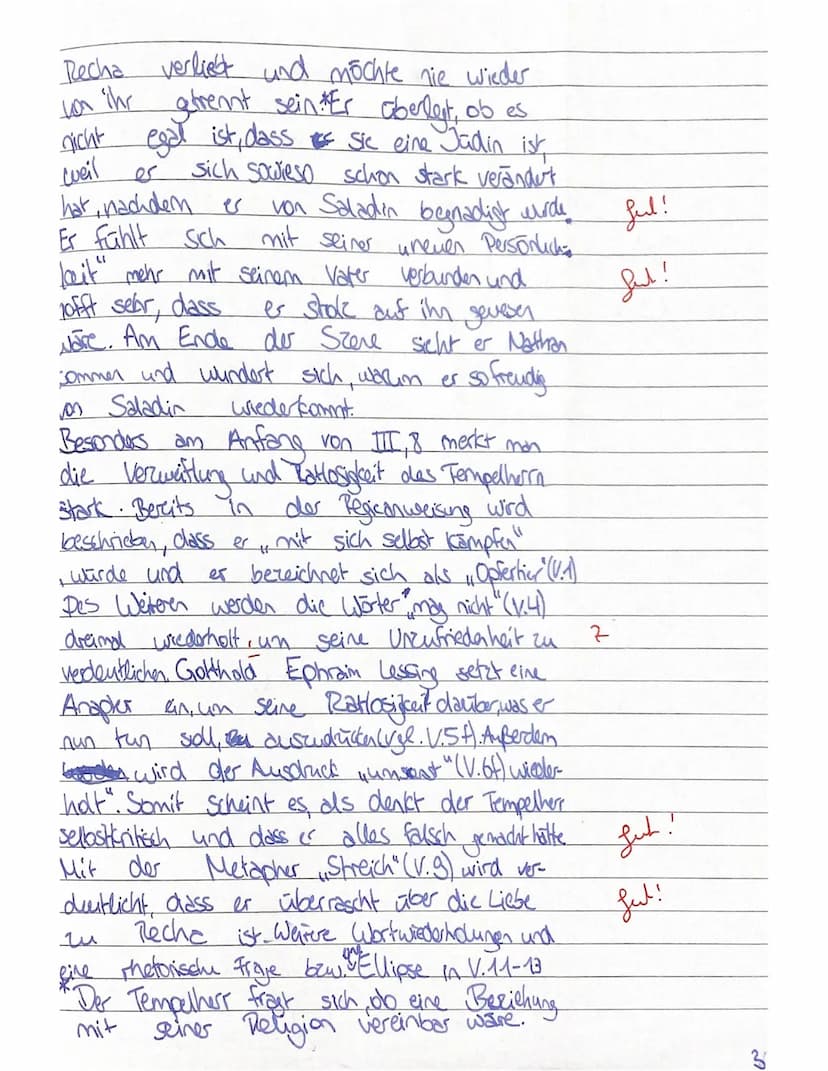 Recha verliebt und möchte nie wieder
von ihr getrennt sein.* Er überlegt, ob es
nicht egal ist, dass sie eine Jüdin ist,
weil er sich sowieso schon stark verändert
hat, nachdem er von Saladin begnadigt wurde. gut!
Er fühlt sich mit seiner „neuen Persönlich-
keit" mehr mit seinem Vater verbunden und gut!
hofft sehr, dass er stolz auf ihn gewesen
wäre. Am Ende der Szene sieht er Nathan
kommen und wundert sich, warum er so freudig
von Saladin wiederkommt.
Besonders am Anfang von III,8 merkt man
die Verzweiflung und Ratlosigkeit des Tempelherrn
stark. Bereits in der Regieanweisung wird
beschrieben, dass er „mit sich selbst kämpfen"
würde und er bezeichnet sich als „Opfertier" (V.1)
Des Weiteren werden die Wörter „mag nicht" (V.4)
dreimal wiederholt, um seine Unzufriedenheit zu Z
verdeutlichen. Gotthold Ephraim Lessing setzt eine
Anapher ein, um seine Ratlosigkeit darüber, was er
nun tun soll, auszudrücken (vgl. V.5f). Außerdem
wird der Ausdruck „umsonst" (V.6f) wieder-
holt". Somit scheint es, als denkt der Tempelherr
selbstkritisch und dass er alles falsch gemacht hätte gut!
Mit der Metapher „Streich" (V.9) wird ver-
deutlicht, dass er überrascht über die Liebe gut!
zu Recha ist. Weitere Wortwiederholungen und
eine rhetorische Frage bzw. eine Ellipse in V.11-13
*Der Tempelherr fragt sich, ob eine Beziehung
mit seiner Religion vereinbar wäre.
3